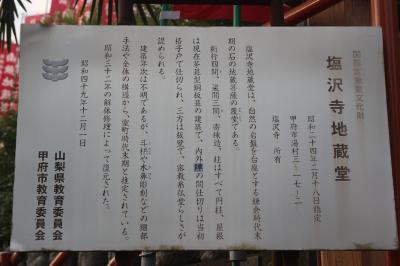 国指定重要文化財
塩沢寺地蔵堂
昭和二十四年二月十八日指定
甲府市湯村三-一七-二
塩沢寺 所有
塩沢寺地蔵堂は、自然の岩盤を台座とする鎌倉時代末
期の石の地蔵菩薩の覆堂である。
桁行四間、梁間三間、寄棟造、柱はすべて円柱、屋根
は現在茅葺型銅板葺の建築で、内外陣の間仕切りは当初
格子戸で仕切られ、三方は板壁で、密教系仏堂らしさが
認められる。
建築年次は不明であるが、斗栱や木鼻彫刻などの細部
手法や全体の構造から、室町時代末期と推定されている。
昭和三十二年の解体修理によって復元された。
昭和四十九年十二月一日
山梨県教育委員会
甲府市教育委員会